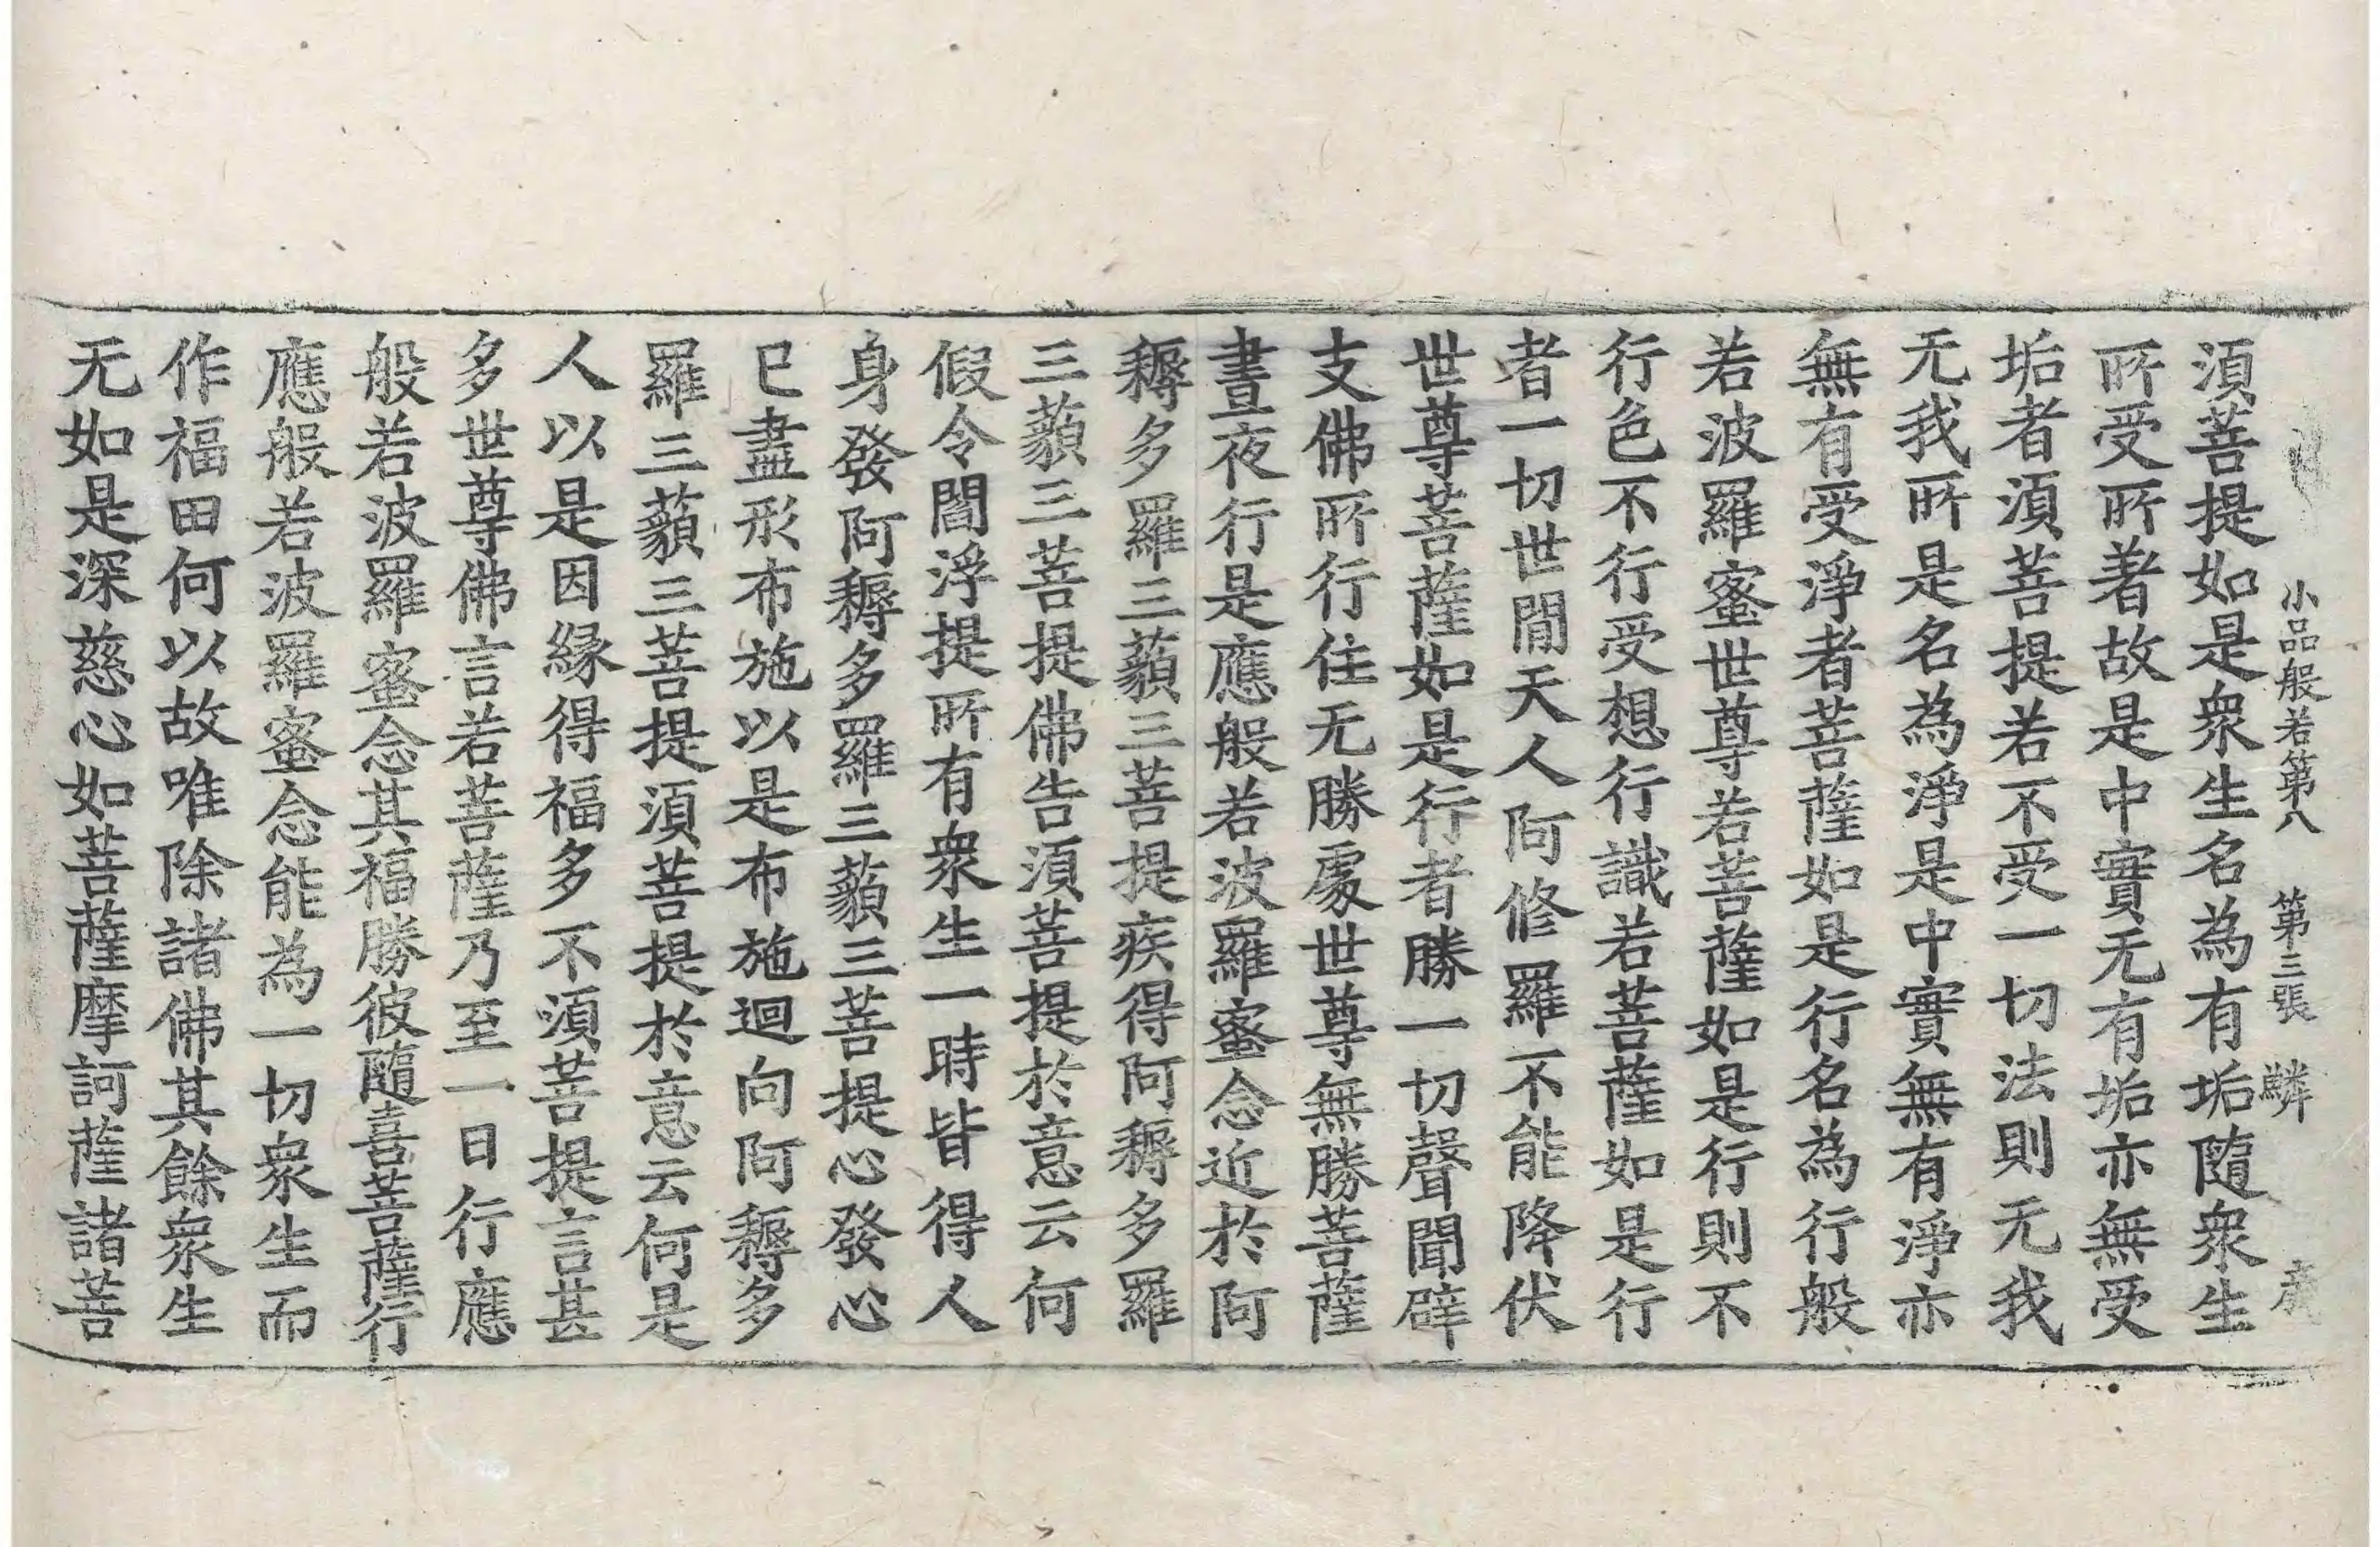 小品般若第八 第三張 鱗
須菩提如是衆生名為有垢隨衆生
所受所著故是中實无有垢亦無受
垢者須菩提若不受一切法則无我
无我所是名為淨是中實無有淨亦
無有受淨者菩薩如是行名為行般
若波羅蜜世尊若菩薩如是行則不
行色不行受想行識若菩薩如是行
者一切世間天人阿修羅不能降伏
世尊菩薩如是行者勝一切聲聞辟
支佛所行住无勝處世尊無勝菩薩
晝夜行是應般若波羅蜜念近於阿
耨多羅三藐三菩提疾得阿耨多羅
三藐三菩提佛告須菩提於意云何
假令閻浮提所有衆生一時皆得人
身發阿耨多羅三藐三菩提心發心
已盡形布施以是布施迴向阿耨多
羅三藐三菩提須菩提於意云何是
人以是因緣得福多不須菩提言甚
多世尊佛言若菩薩乃至一日行應
般若波羅蜜念其福勝彼隨喜菩薩行
應般若波羅蜜念能為一切衆生而
作福田何以故唯除諸佛其餘衆生
无如是深慈心如菩薩摩訶薩諸菩